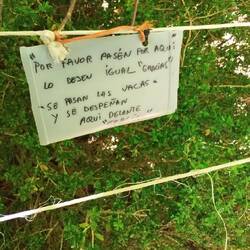 "POR FAVOR PASÉN POR AQUI
LO DEJEN IGUAL "GRACIAS"
"SE PASAN LAS VACAS"
Y SE DESPEÑAN
AQUI DELANTE